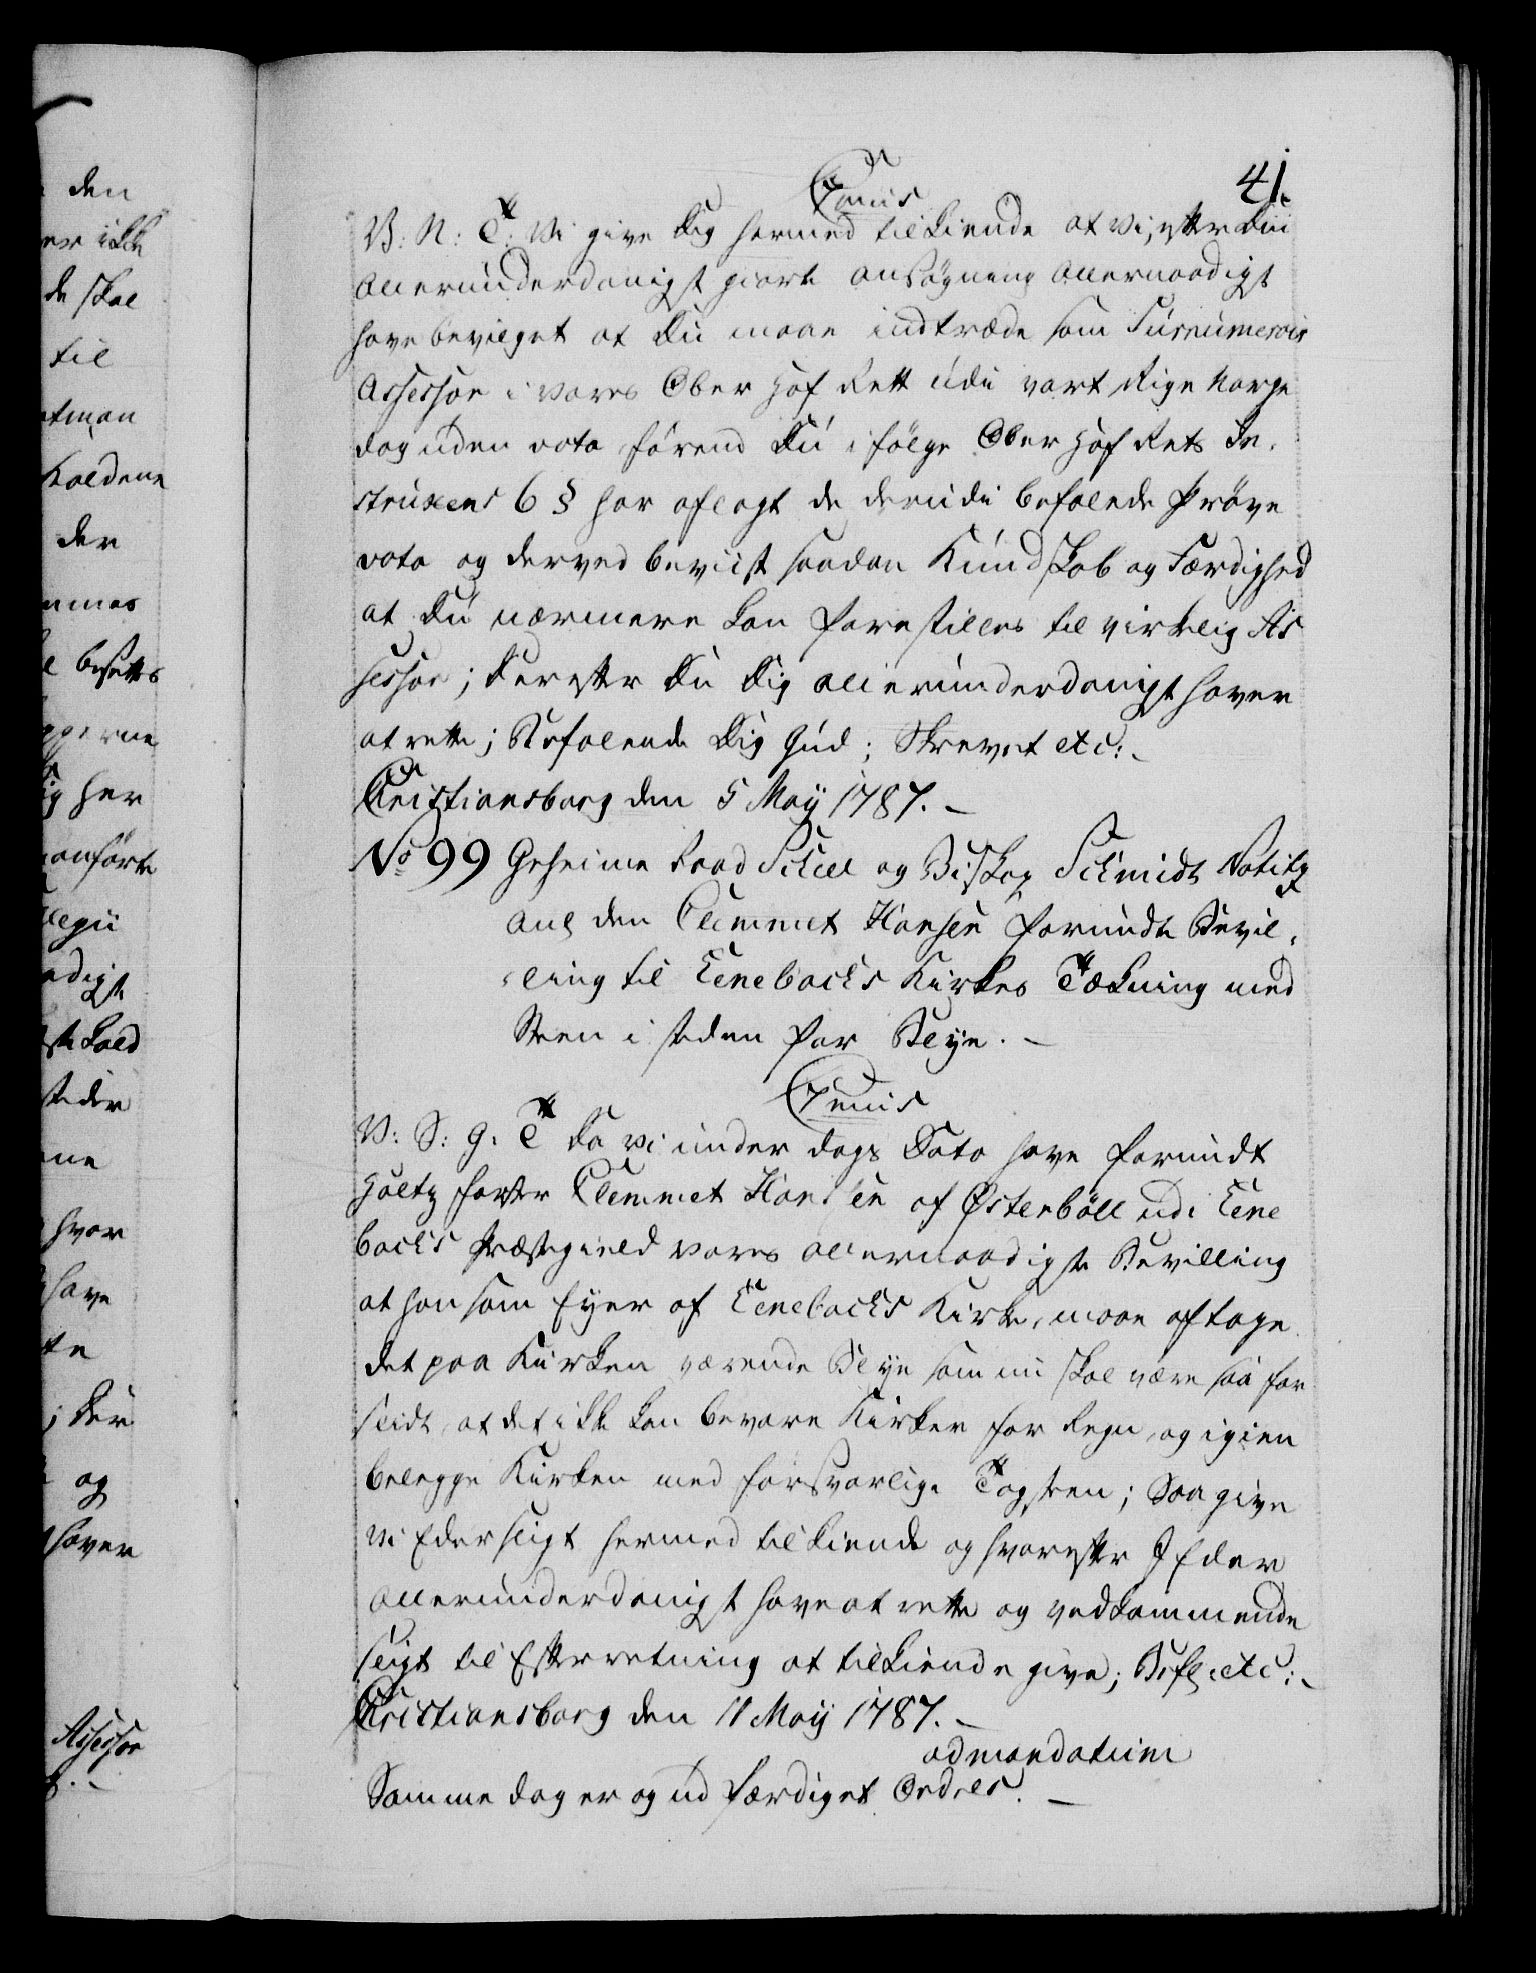 41.
C7 VII
V: N: T: Vi give Dig hermed tilkiende at Vi, efter Din
allerunderdanigst giorte Ansøgning allernaadigst
have bevilget at Du maae indtræde som Surnumerois
Assessor i vores Ober Hof Rett udi vort Rige Norge
dog uden vota førend Du i følge Ober Hof Rets In-
struxens 6 § har aflagt de derudi befalede Prøve
vota og derved beviist saadan Kundskab og Færdighed
at Du nærmere kan forestilles til virkelig As
sessor; Derefter Du Dig allerunderdanigst haver
at rette; Befalende Dig Gud; Skrevet etc:
Christiansborg den 5 May 1787.
No 99 Geheime Raad Scheel og Biskop Schmidt Notitz
ang den Clemmet Hansen forundte Bevil-
-ling til Eenebachs Kirkes Tækning med
Steen i steden for Blye.
V: S: G: T Da vi under dags Dato have forundt
Holtz Forster Clemmet Hansen af Østenbøll udi Eene
bachs Præstegield vores allernaadigste Bevilling
at han som Eyer af Eenebachs Kirke, maae aftage
det paa Kirken værende Blye som nu skal være saa for
sliidt, at det ikke kan bevare Kirken for Regn, og igien
belegge Kirken med forsvarlige Tagsteen; Saa give
vi Eder sligt hermed tilkiende og hvorefter I Eder
allerunderdanigst have at rette og vedkommende
sligt til Efterretning at tilkiende give; Befl: etc:
Christiansborg den 11 May 1787.
ad mandatum
Samme dag er og udfærdiget Ordres.
den
er ikke
de skal
til
tman
Kaldene
der
mmes
besættes
pperne
ig her
anførte
llegii
adigst
ste Kald
steder
ne
hvor
have
te
; Der
og
haver
Assessor